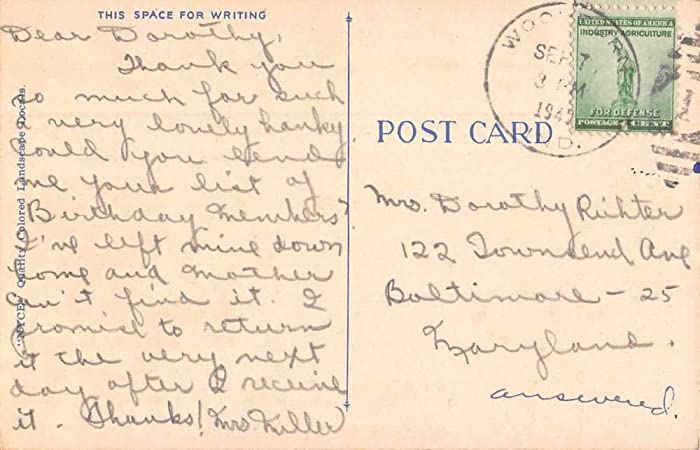 THIS SPACE FOR WRITING
Dear Dorothy,
Thank you
so much for such
a very lovely hanky.
Could you lend
me your list of
Birthday Members?
I've left mine down
home and mother
can't find it. I
promise to return
it the very next
day after I receive
it. Thanks! Mrs Miller
"NYCE" Quality Colored Landscape Locals.
WOOD
SEP 7
3 PM
194
D.
UNITED STATES OF AMERICA
INDUSTRY AGRICULTURE
FOR DEFENSE
POSTAGE 1 CENT
POST CARD
Mrs. Dorothy Richter
122 Townsend Ave
Baltimore - 25
Maryland.
answered.